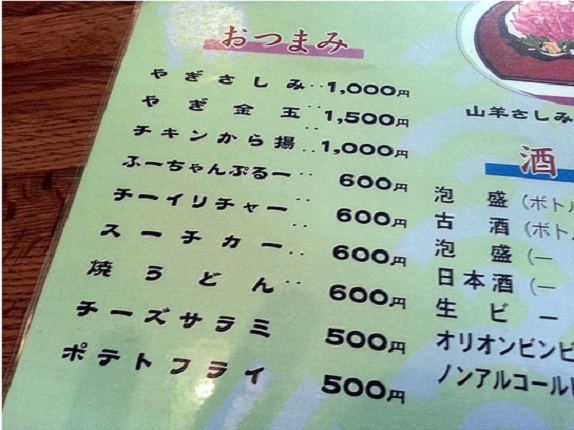 おつまみ
やぎさしみ‥1,000円
やぎ金玉‥1,500円
チキンから揚‥1,000円
ふーちゃんぷるー‥600円
チーイリチャー‥600円
スーチカー‥600円
焼うどん‥600円
チーズサラミ 500円
ポテトフライ 500円
山羊さしみ
酒
泡盛(ボトル
古酒(ボト
泡盛(一
日本酒(一
生ビー
オリオンビンビ
ノンアルコール